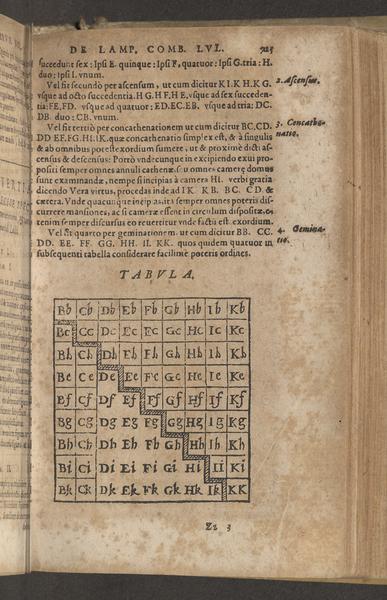 DE LAMP. COMB. LVL. 725
succedunt sex: Ipsi E. quinque: Ipsi F, quatuor: Ipsi G. tria: H.
duo: Ipsi I. vnum.
Vel fit secundò per ascensum, ut cum dicitur K I. K H. K G. 2. Ascensus.
vsque ad octo succedentia. H G. H F. H E. vsque ad sex succeden-
tia: FE, FD. vsque ad quatuor: ED. EC. EB. vsque ad tria: DC.
DB. duo: CB. vnum.
Vel fit tertiò per concathenationem ut cum dicitur BC. CD. 3. Concathe-
DD EF. FG. HI. IK. quæ concathenatio simplex est, & à singulis natio.
& ab omnibus potest exordium sumere, ut & proximè dicti as-
census & descensus: Porrò vndecunque in excipiendo exui pro-
positi semper omnes annuli cathenæ, seu omnes cameræ domus
sunt examinandæ, nempe si incipias à camera HI. verbi gratia
dicendo Vera virtus, procedas inde ad IK. KB. BC. CD. &
cætera. Vnde quacunque incipias, ita semper omnes poteris dis-
currere mansiones, ac si cameræ essent in circulum dispositæ, ei-
tem semper discursus eo reuertitur vnde facta est exordium.
Vel fit quarto per geminationem. ut cum dicitur BB. CC. 4. Gemina-
DD. EE. FF. GG. HH. II. KK. quos quidem quatuor in tio.
subsequenti tabella considerare facillimè poteris ordines.
TABVLA.
Bb Cb Db Eb Fb Gb Hb Ib Kb
Bc Cc Dc Ec Fc Gc Hc Ic Kc
Bh Ch Dh Eh Fh Gh Hh Ih Kh
Be Ce De Ee Fe Ge He Ie Ke
Bf Cf Df Ef Ff Gf Hf If Kf
Bg Cg Dg Eg Fg Gg Hg Ig Kg
Bh Ch Dh Eh Fh Gh Hh Ih Kh
Bi Ci Di Ei Fi Gi Hi Ii Ki
Bk Ck Dk Ek Fk Gk Hk Ik KK
Zz 3